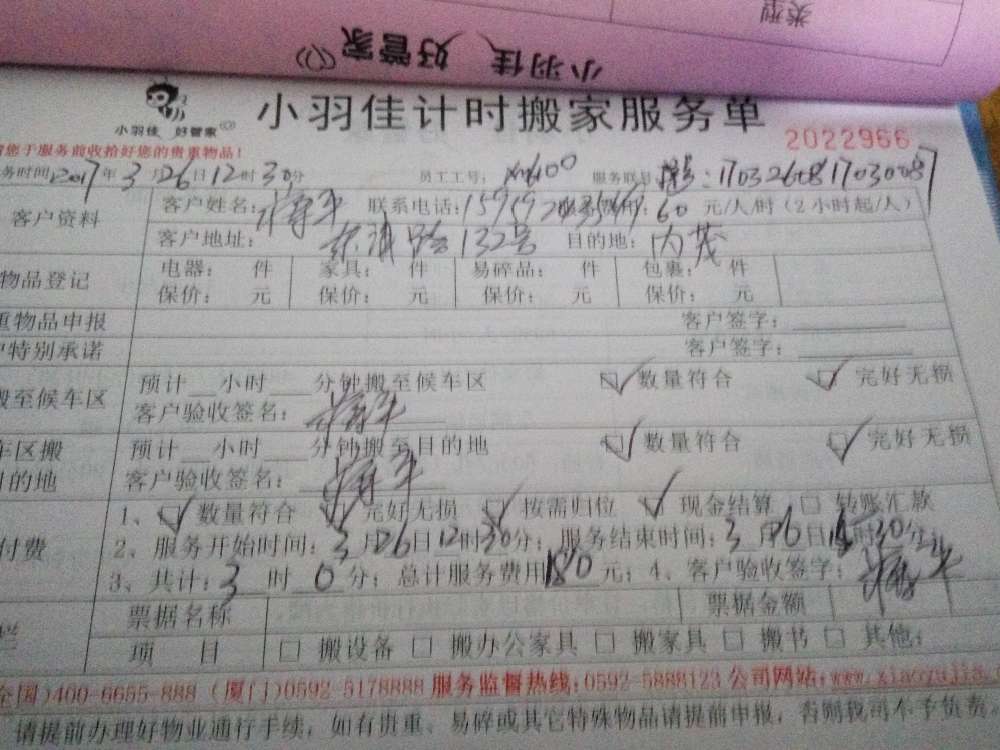 类型
小羽佳 好管家
小羽佳 好管家
小羽佳计时搬家服务单
2022966
您于服务前收拾好您的贵重物品!
务时间 2017年3月26日12时30分 员工工号: 服务联号
客户资料 客户姓名: 联系电话: 60元/人/时(2小时起/人)
客户地址: 路132号 目的地:内茂
物品登记 电器: 件 家具: 件 易碎品: 件 包裹: 件
保价: 元 保价: 元 保价: 元 保价: 元
重物品申报 客户签字:
户特别承诺 客户签字:
搬至候车区 预计 小时 分钟搬至候车区 数量符合 完好无损
客户验收签名:
车区搬 预计 小时 分钟搬至目的地 数量符合 完好无损
目的地 客户验收签名:
1、 数量符合 完好无损 按需归位 现金结算 转账汇款
付费 2、服务开始时间:3月26日12时30分;服务结束时间:3月26日15时30分
3、共计:3时0分;总计服务费用180元;4、客户验收签字:
票据名称 票据金额
项 目 搬设备 搬办公家具 搬家具 搬书 其他:
全国)400-6655-888 (厦门)0592-5178888 服务监督热线:0592-5888123 公司网站:www.xiaoyujia.
请提前办理好物业通行手续,如有贵重、易碎或其它特殊物品请提前申报,否则我司不予负责。